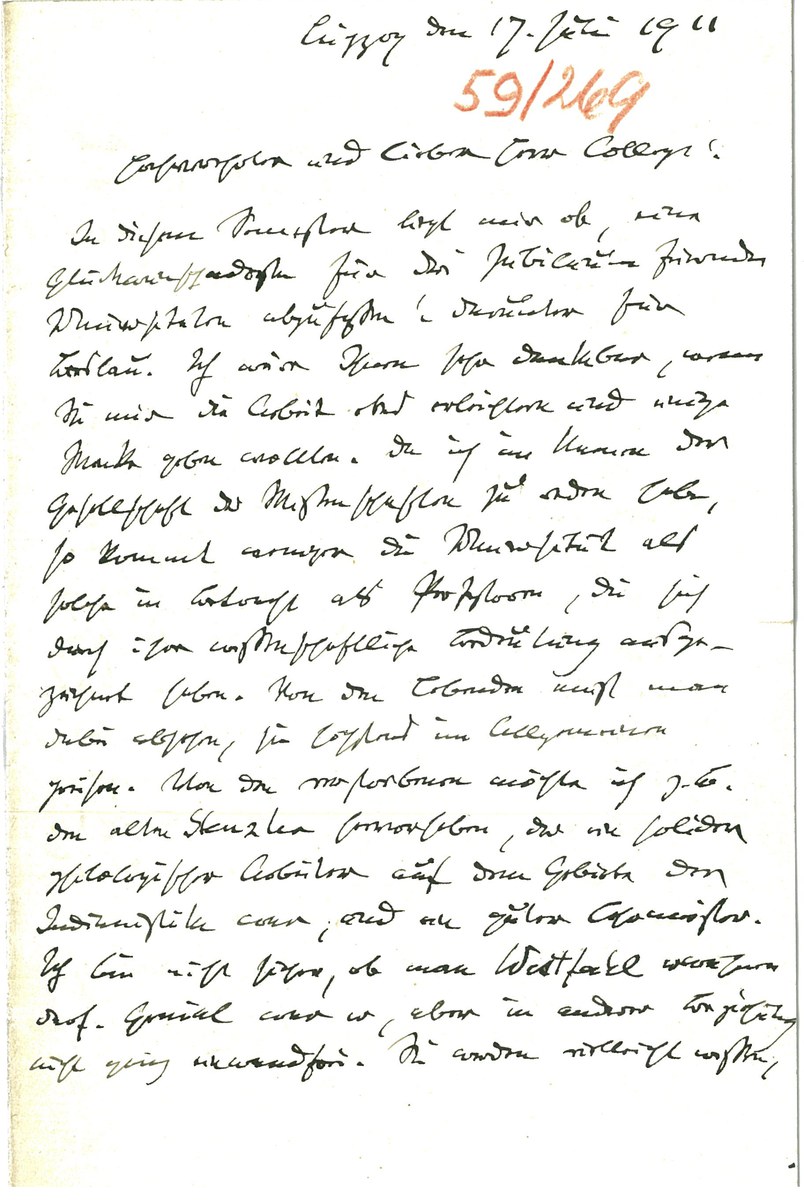 Leipzig den 17. Juli 1911
59/269
Hochverehrter und lieber Herr College!
In diesem Semester liegt mir ob, eine
Glückwunschadresse für das Jubiläum fremder
Universitäten abzufassen! darunter für
Breslau. Ich wäre Ihnen sehr dankbar, wenn
Sie mir die Arbeit etwas erleichtern und einige
Winke geben wollten. Da ich im Namen der
Gesellschaft der Wissenschaften zu reden habe,
so kommt weniger die Universität als
solche in Betracht als Professoren, die sich
durch ihre wissenschaftliche Bedeutung ausge-
zeichnet haben. Von den Lebenden muß man
dabei absehen, sie höchstens im Allgemeinen
preisen. Von den verstorbenen möchte ich z.B.
den alten Stenzler hervorheben, der ein solider
philologischer Arbeiter auf dem Gebiete der
Indianistik war, und ein guter Lehrmeister.
Ich bin nicht sicher, ob man Westfahl nennen
darf. Genial war er, aber in anderer Beziehung
nicht ganz einwandfrei. Sie werden vielleicht wissen,